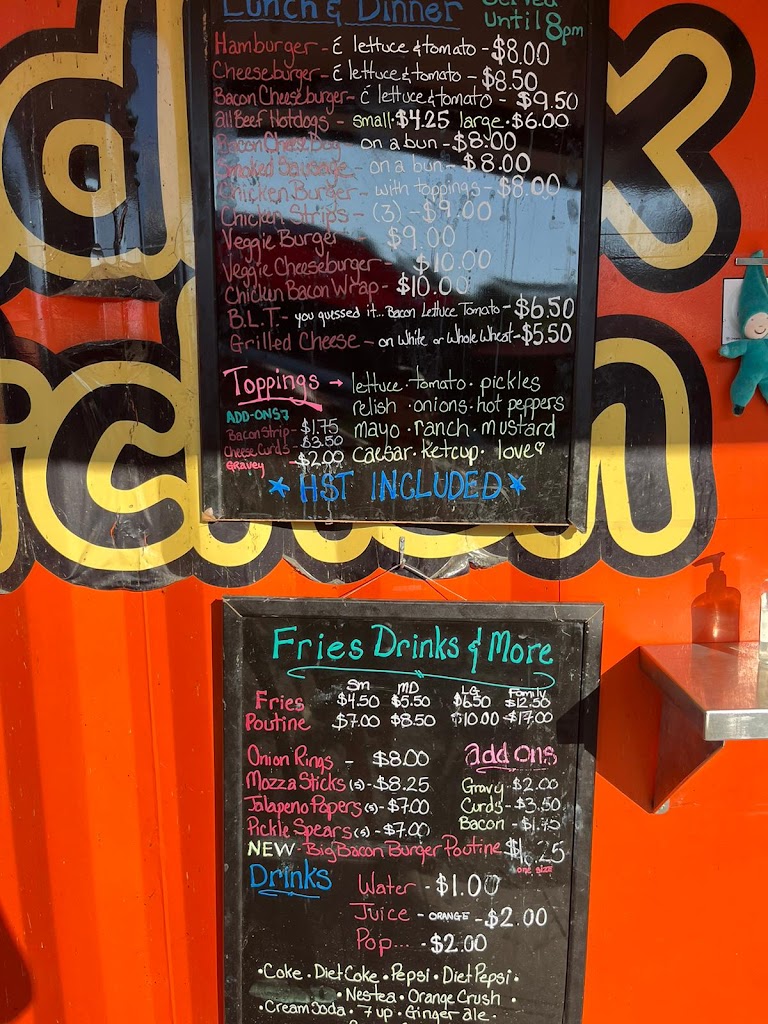 Lunch & Dinner Served
until 8pm
Hamburger - c lettuce & tomato - $8.00
Cheeseburger - c lettuce & tomato - $8.50
Bacon Cheeseburger - c lettuce & tomato - $9.50
all Beef Hotdogs - small $4.25 large $6.00
Bacon Cheese Dog on a bun - $8.00
Smoked Sausage - on a bun - $8.00
Chicken Burger - with toppings - $8.00
Chicken Strips - (3) - $9.00
Veggie Burger $9.00
Veggie Cheeseburger - $10.00
Chicken Bacon Wrap - $10.00
B.L.T. - you guessed it... Bacon Lettuce Tomato - $6.50
Grilled Cheese - on White or Whole Wheat - $5.50
Toppings → lettuce · tomato · pickles
relish · onions · hot peppers
ADD-ONS
Bacon Strip - $1.75 mayo · ranch · mustard
Cheese Curds - $3.50
Gravey - $2.00 caesar · ketcup · love ♡
★ HST INCLUDED ★
Fries Drinks & More
Sm MD LG Family
Fries $4.50 $5.50 $6.50 $12.50
Poutine $7.00 $8.50 $10.00 $17.00
Onion Rings - $8.00 add ons
Mozza Sticks (5) - $8.25 Gravy - $2.00
Jalapeno Popers (5) - $7.00 Curds - $3.50
Pickle Spears (5) - $7.00 Bacon - $1.75
NEW - Big Bacon Burger Poutine
one size
Drinks Water - $1.00
Juice - ORANGE - $2.00
Pop... - $2.00
· Coke · Diet Coke · Pepsi · Diet Pepsi ·
· Nestea · Orange Crush ·
· Cream Soda · 7 up · Ginger ale ·